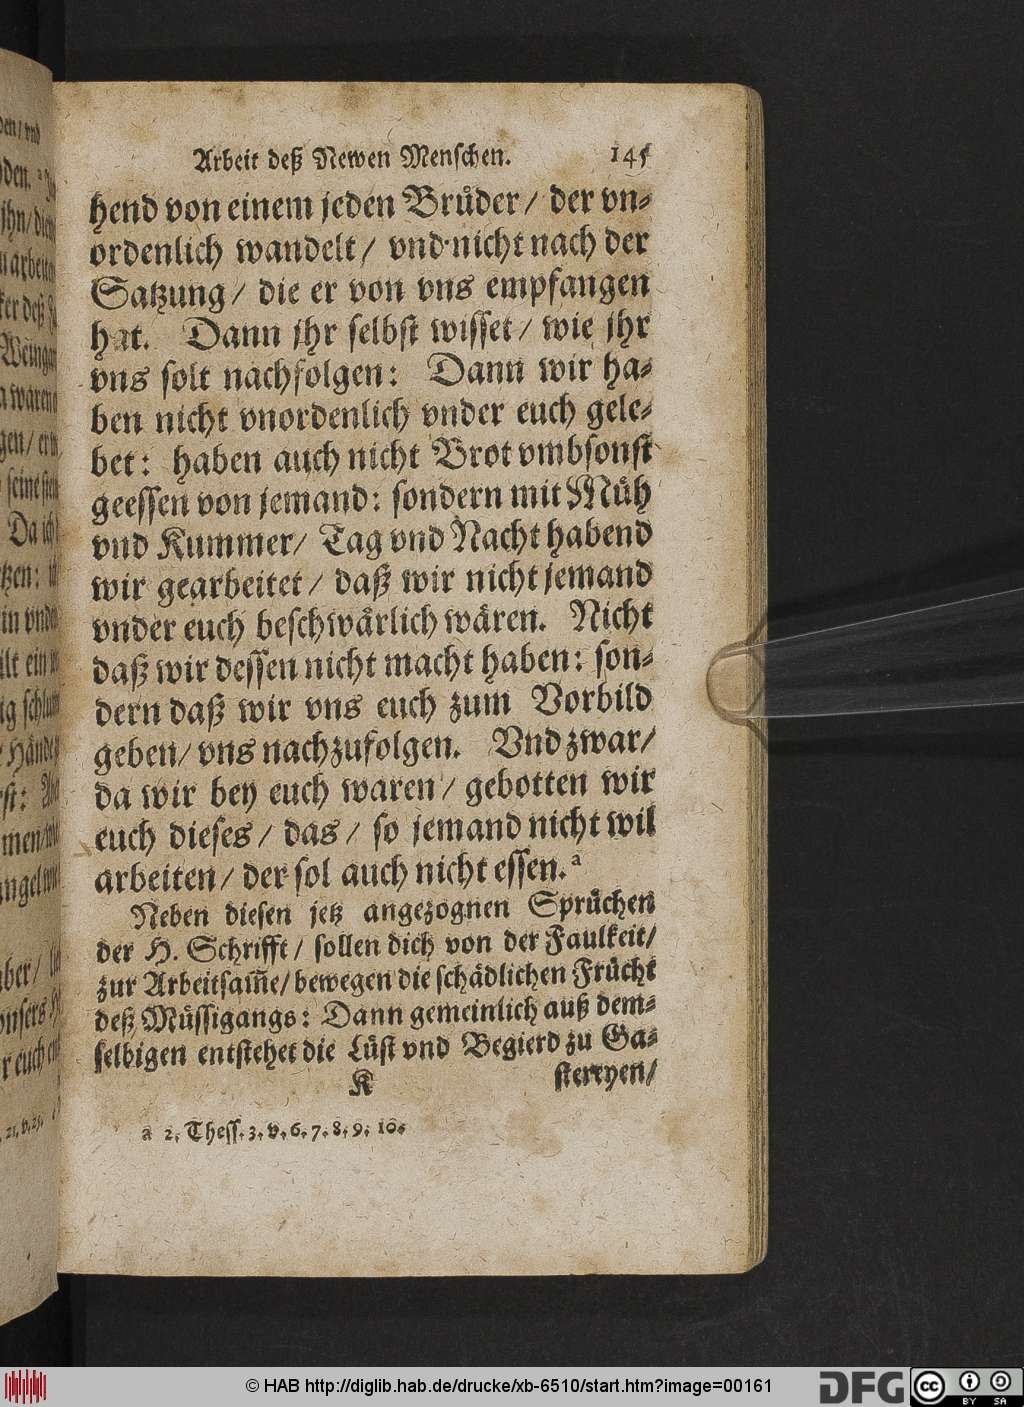 Arbeit deß Newen Menschen. 145
hend von einem jeden Bruͤder / der vn-
ordenlich wandelt / vnd nicht nach der
Satzung / die er von vns empfangen
hat. Dann jhr selbst wisset / wie jhr
vns solt nachfolgen: Dann wir ha-
ben nicht vnordenlich vnder euch gele-
bet: haben auch nicht Brot vmbsonst
geessen von jemand: sondern mit Muͤh
vnd Kummer / Tag vnd Nacht habend
wir gearbeitet / daß wir nicht jemand
vnder euch beschwaͤrlich waͤren. Nicht
daß wir dessen nicht macht haben: son-
dern daß wir vns euch zum Vorbild
geben / vns nachzufolgen. Vnd zwar /
da wir bey euch waren / gebotten wir
euch dieses / das / so jemand nicht wil
arbeiten / der sol auch nicht essen. a
Neben diesen jetz angezognen Spruͤchen
der H. Schrifft / sollen dich von der Faulkeit /
zur Arbeitsam̃e / bewegen die schaͤdlichen Fruͤcht
deß Muͤssigangs: Dann gemeinlich auß dem-
selbigen entstehet die Luͤst vnd Begierd zu Ga-
K stereyen /
a 2. Thess. 3. v. 6. 7. 8. 9. 10.
© HAB http://diglib.hab.de/drucke/xb-6510/start.htm?image=00161
DFG
cc BY SA